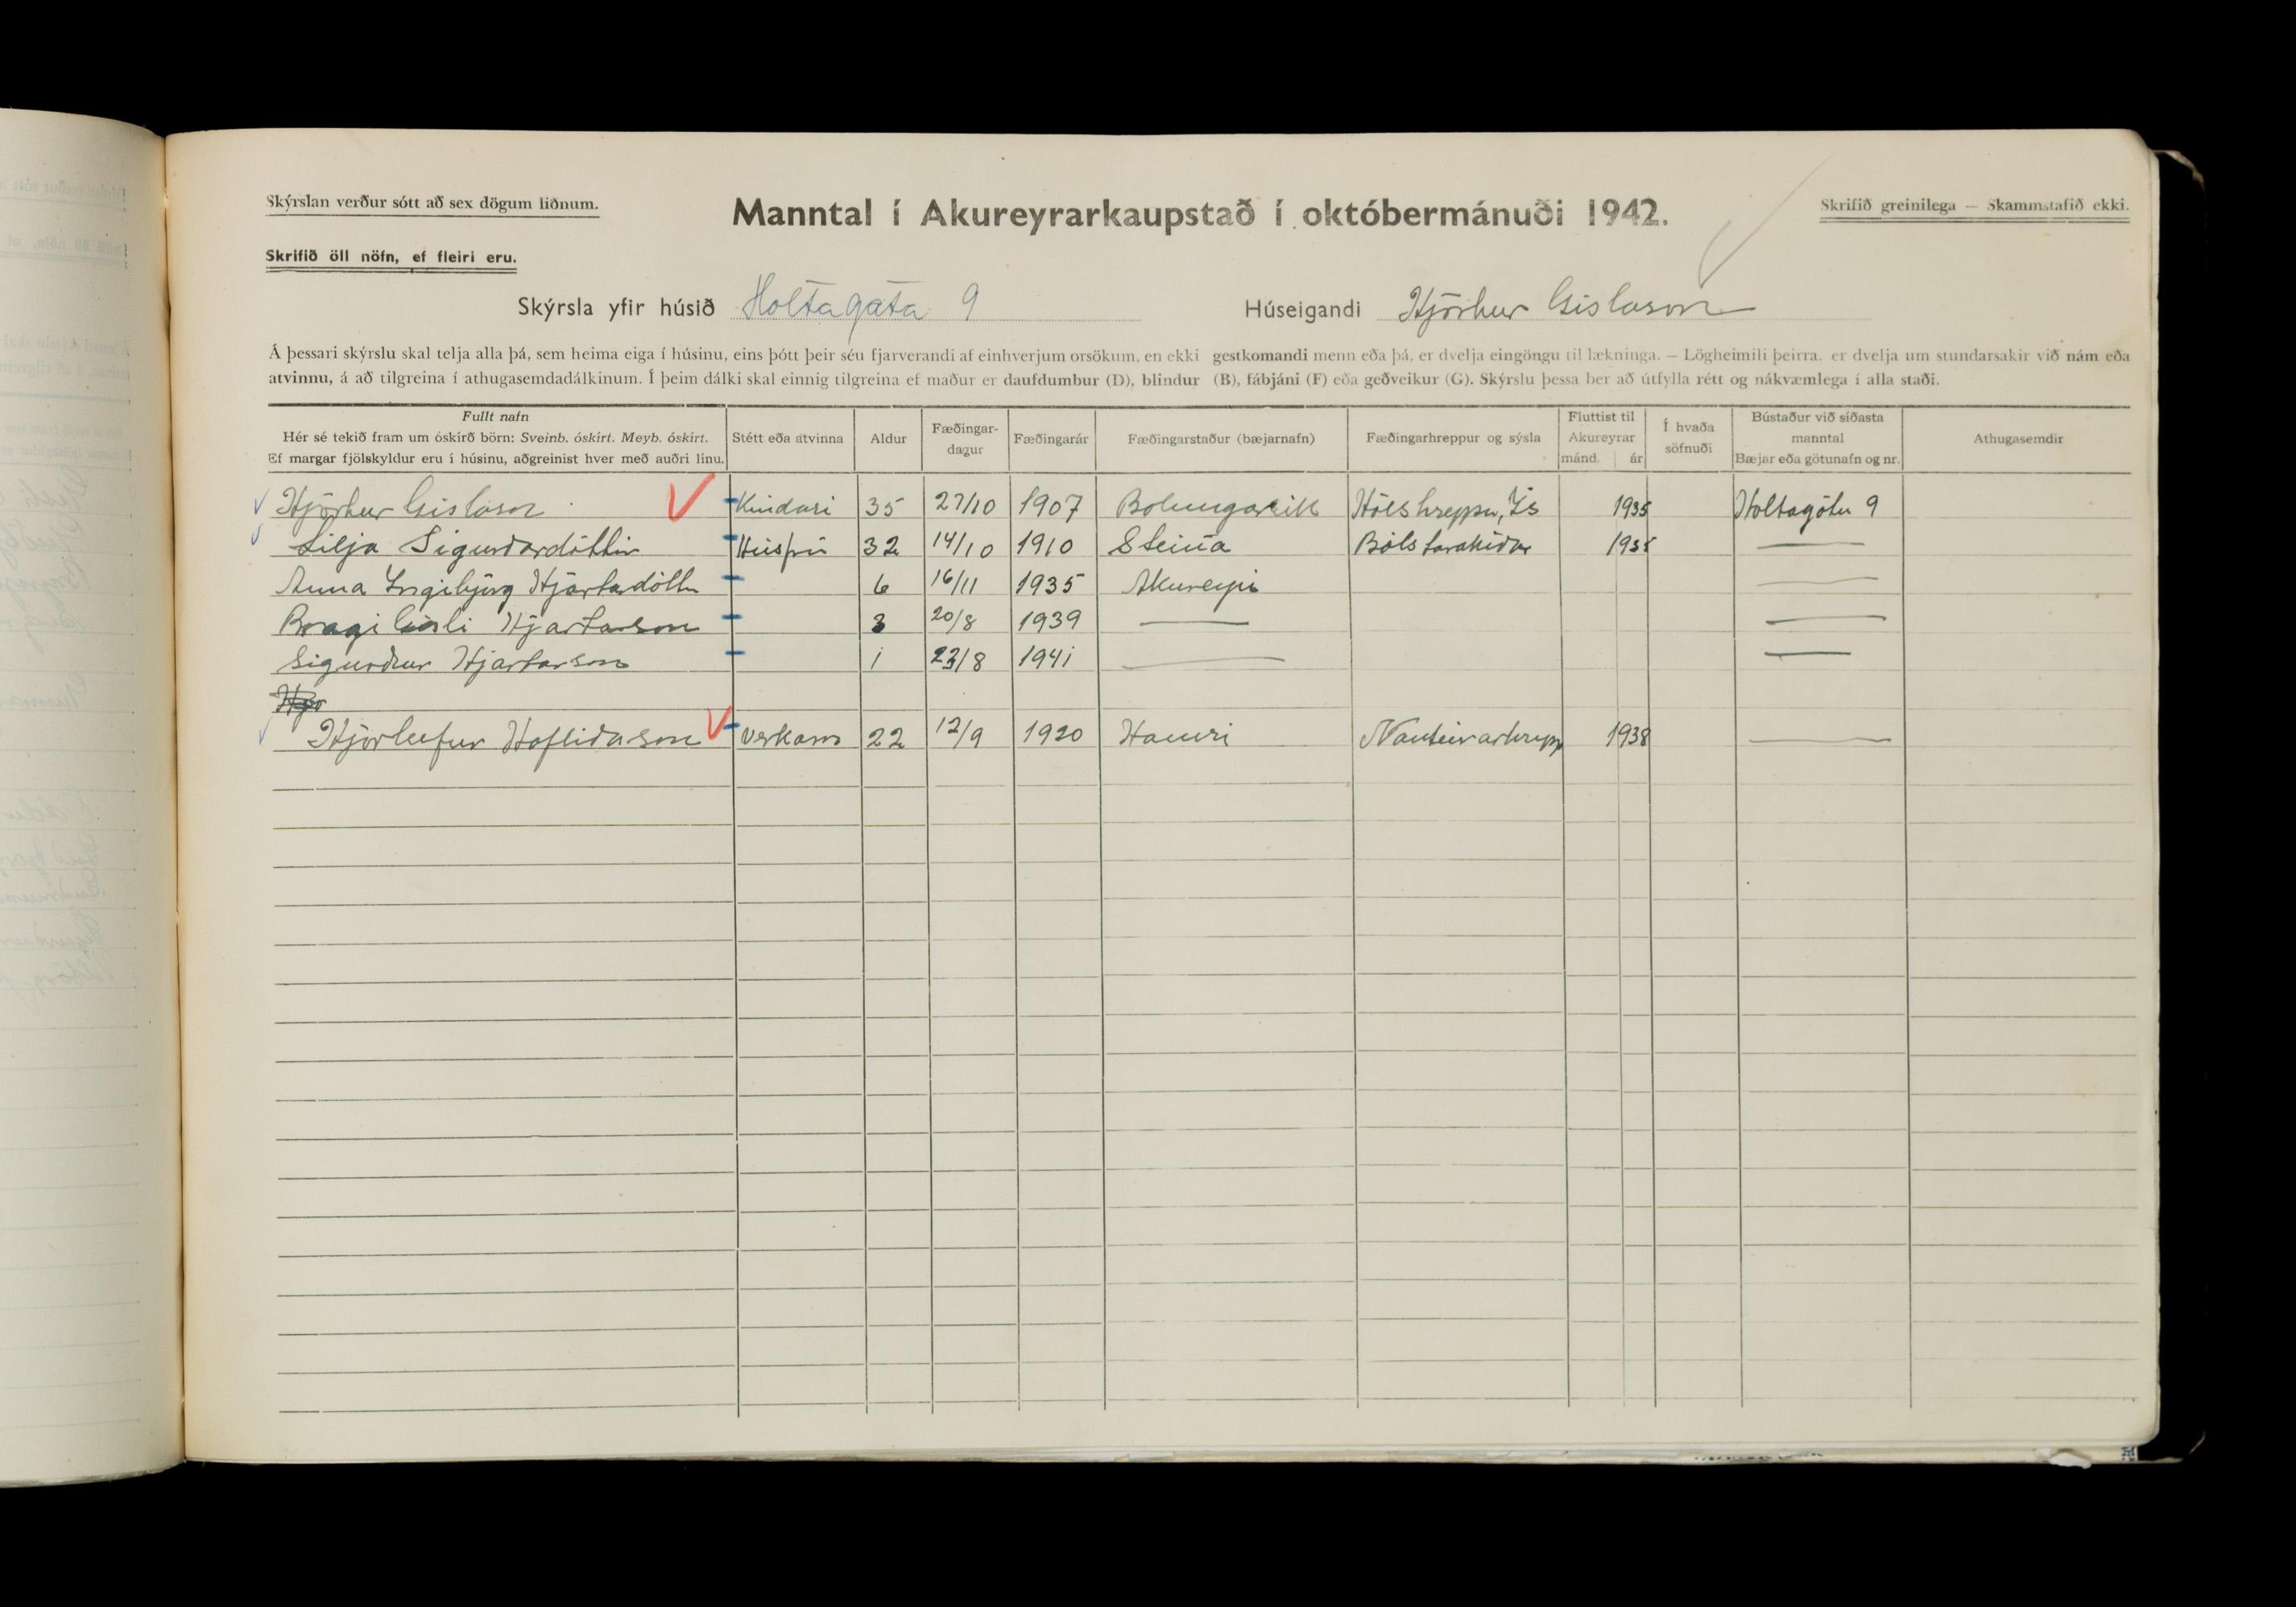 Skýrslan verður sótt að sex dögum liðnum.
Manntal í Akureyrarkaupstað í októbermánuði 1942.
Skrifið greinilega — Skammstafið ekki.
Skrifið öll nöfn, ef fleiri eru.
Skýrsla yfir húsið Holtagata 9 Húseigandi Hjörtur Gíslason
Á þessari skýrslu skal telja alla þá, sem heima eiga í húsinu, eins þótt þeir séu fjarverandi af einhverjum orsökum, en ekki gestkomandi menn eða þá, er dvelja eingöngu til lækninga. — Lögheimili þeirra, er dvelja um stundarsakir við nám eða
atvinnu, á að tilgreina í athugasemdadálkinum. Í þeim dálki skal einnig tilgreina ef maður er daufdumbur (D), blindur (B), fábjáni (F) eða geðveikur (G). Skýrslu þessa ber að útfylla rétt og nákvæmlega í alla staði.
Fullt nafn
Hér sé tekið fram um óskírð börn: Sveinb. óskírt. Meyb. óskírt.
Ef margar fjölskyldur eru í húsinu, aðgreinist hver með auðri línu.
Stétt eða atvinna
Aldur
Fæðingar-
dagur
Fæðingarár
Fæðingarstaður (bæjarnafn)
Fæðingarhreppur og sýsla
Fluttist til
Akureyrar
mánd. ár
Í hvaða
söfnuði
Bústaður við síðasta
manntal
Bæjar eða götunafn og nr.
Athugasemdir
Hjörtur Gíslason Kindari 35 27/10 1907 Bolungarvík Hólshreppur, Ís 1935 Holtagötu 9
Lilja Sigurðardóttir Húsfrú 32 14/10 1910 Steiná 1935 —
Anna Ingibjörg Hjartardóttir 6 16/11 1935 Akureyri —
Bragi Gísli Hjartarson 3 20/8 1939 — —
Sigurður Hjartarson 1 23/8 1941 — —
Hjörleifur Hafliðason verkam 22 12/9 1920 Hamri Nauteyrarhrepp 1938 —